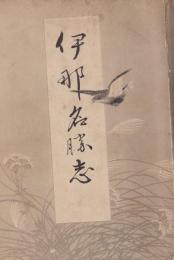 伊那名勝志